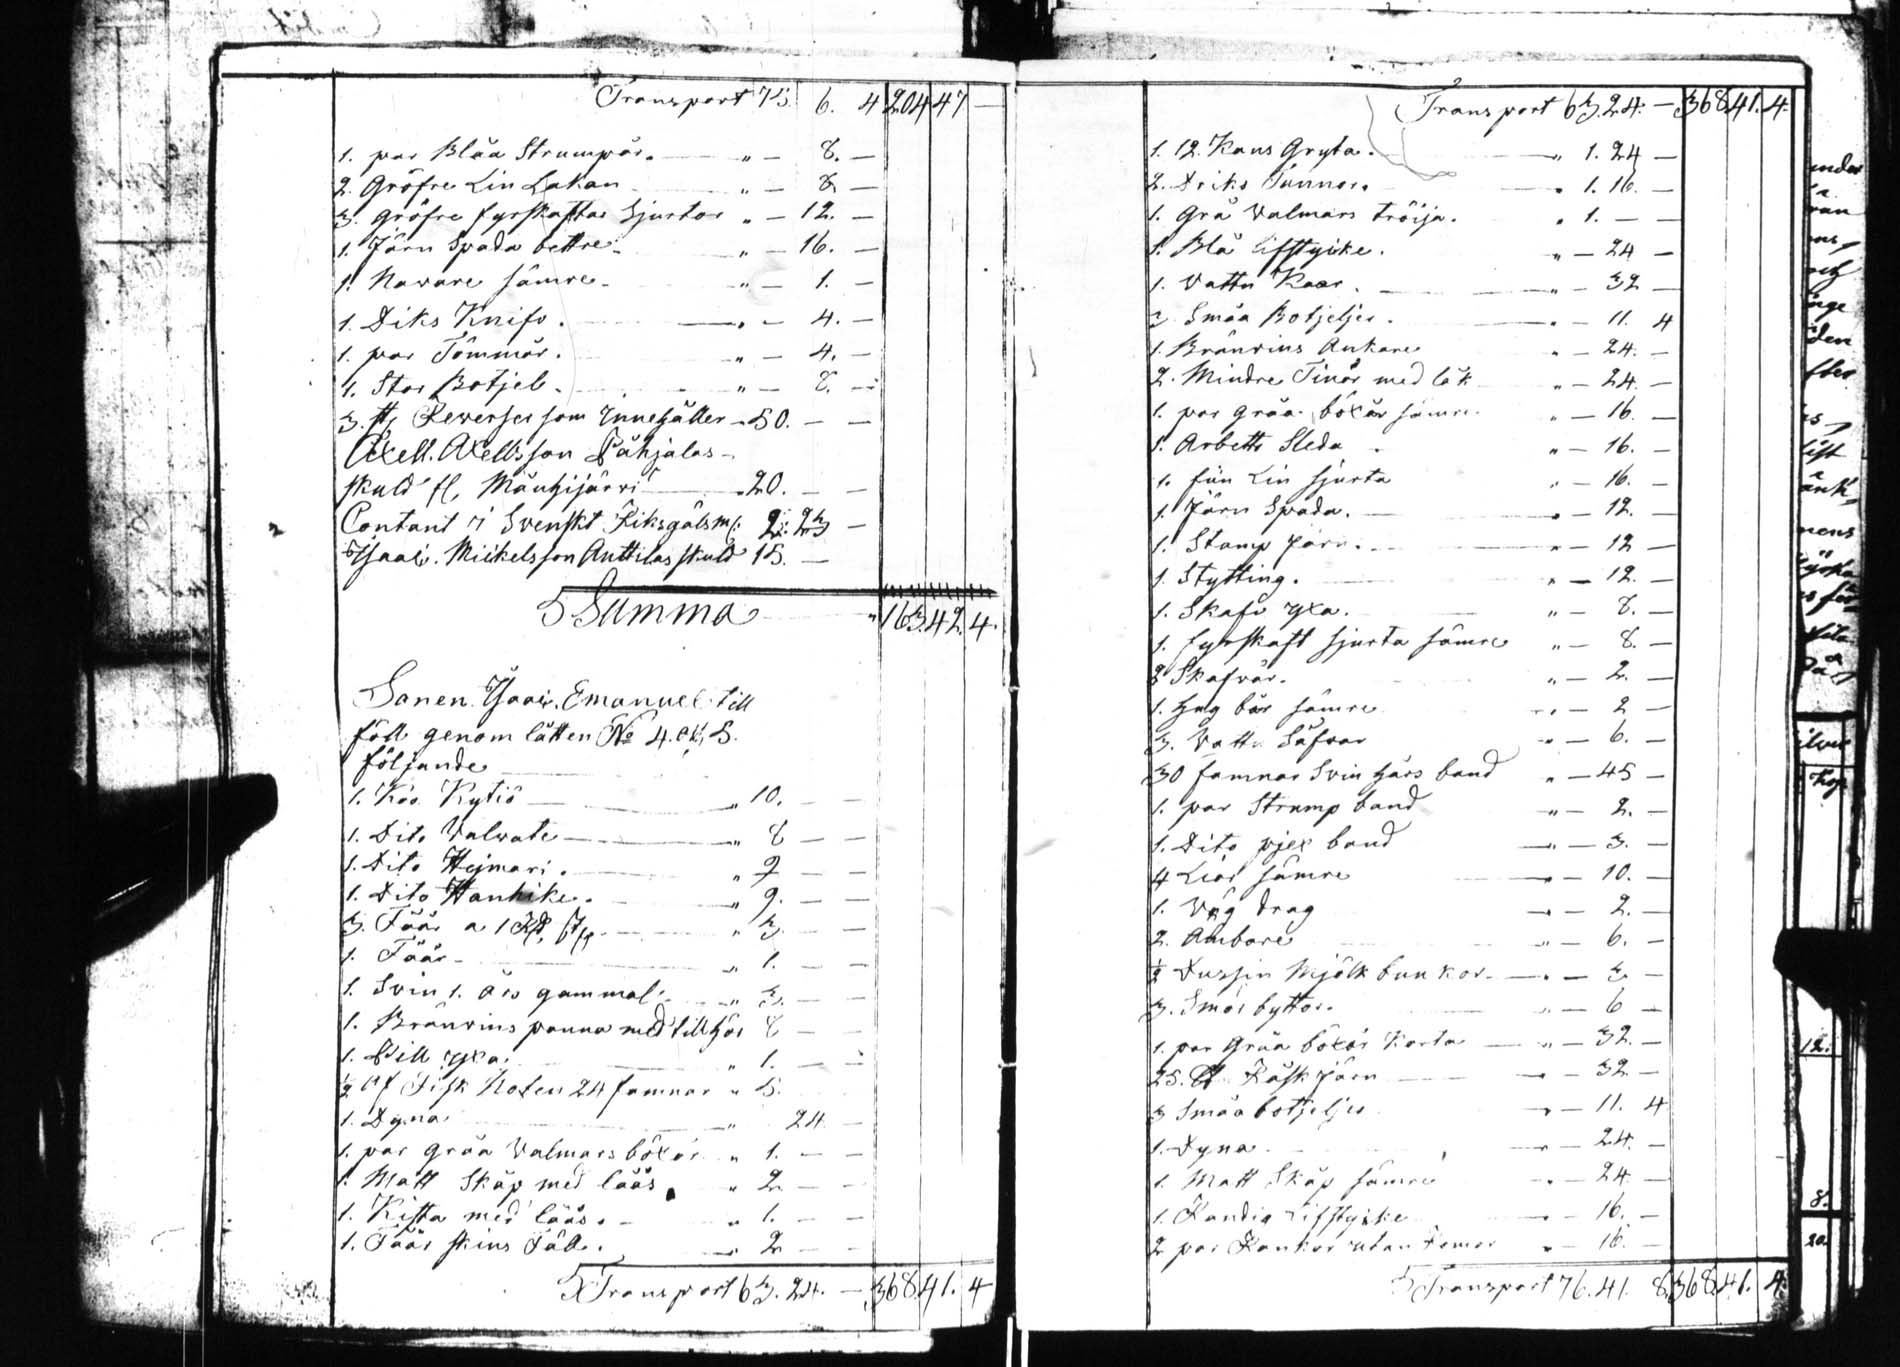 Transport 75. 6. 4 204 47 —
1. par Blåa Strumpor. " — 8. —
2. Gröfre Lin Lakan " — 8 —
3. gröfre fyrskaftas Sjurtor " — 12. —
1. Järn Spada bettre " — 16. —
1. Navare sämre " — 1. —
1. Diks Knifv. " — 4. —
1. par Tömmar. " — 4. —
1. Stor Botjel. " — 8. —
3. st, Reverser som Innehåller " 50. — —
Axell. Axellsson
skuld fl, " 20. — —
Contant i Svenskt Riksgäls
Isaac. Mickelsson Anttilas skuld 15. —
Summa " 163. 42. 4.
Sonen Isaac. Emanuel till
föll genom låtten No 4. 5.
följande
1. Koo Kytiö " 10. — —
1. Dito Valvate " 8 — —
1. Dito Hejmari. " 9 — —
1. Dito Hanhike. " 9. — —
3. Fåår a 1 " 3. — —
1. Fåår " 1. — —
1. Svin 1. års gammal. " 3. — —
1. Bränvins panna med tillhör 8 — —
1. Bill yxa. " 1. — —
1/2 af Fisk Noten 24 famnar " 5.
1. Dyna " 24. —
1. par gråa Valmars böxor " 1. — —
1. Matt Skåp med låås " 2 — —
1. Kista med låås. " 1. — —
1. Fåår skins Fäll. " 2 — —
Transport 63. 24. — 368. 41. 4
Transport 63. 24. — 368. 41. 4.
1. 12. Kans Gryta. " 1. 24 —
2. Driks Tunnor. " 1. 16. —
1. Grå Valmars tröija. " 1. — —
1. Blå lifstycke. " — 24 —
1. Vattu Kaar. " — 32 —
3 Småa Botjeljer. " — 11. 4
1. Bränvins Ankare " — 24. —
2. Mindre Tinor med låk " — 24. —
1. par gråa böxor sämre " — 16. —
1. Arbetts Sleda " — 16. —
1. fiin Lin sjurta " — 16. —
1. Järn Spada. " — 12. —
1. Stamp Järn. " — 12 —
1. Stytting. " — 12. —
1. Skaft yxa. " — 8. —
1. fyrskaft sjurta sämre " — 8. —
2 Skafvar. " — 2. —
1. sämre " — 2 —
3. Vattu Såfvar " — 6. —
30 famnar Svin hårs band " — 45 —
1. par Strump band " — 2. —
1. Dito pjex band " — 3. —
4 Liar sämre " — 10. —
1. Väg drag " — 2. —
2. Ambare " — 6. —
1/2 Dussin Mjölk bunkor " — 3 —
3. Smör byttor. " — 6 —
1. par Gråa böxor Korta " — 32. —
25. Järn " — 32 —
3 Småa botjeljer " — 11. 4
1. Dyna " — 24. —
1. Matt Skåp sämre " — 24. —
1. Randig Lifstycke " — 16. —
2 par utan " — 16. —
Transport 76. 41. 8. 368. 41. 4.